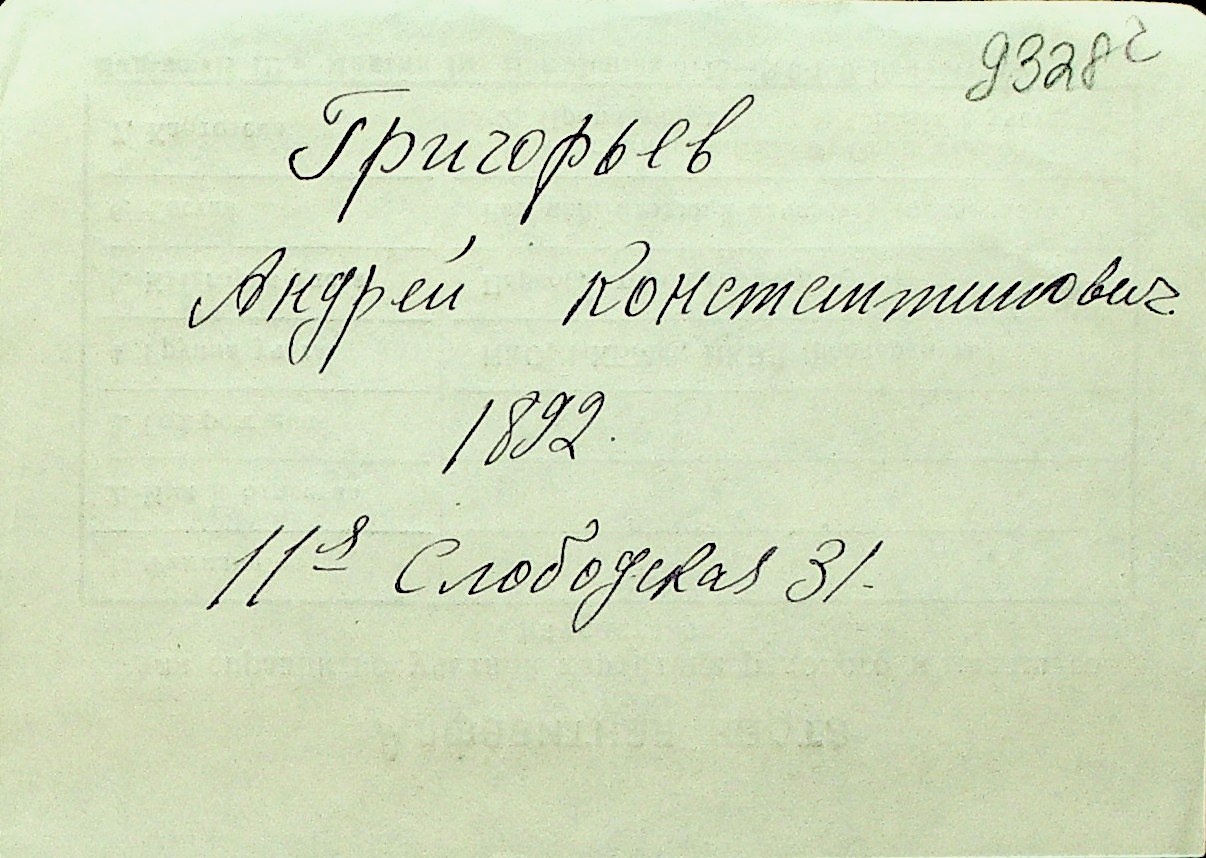 9328г
Григорьев
Андрей Константинович.
1892.
11я Слободская 31.